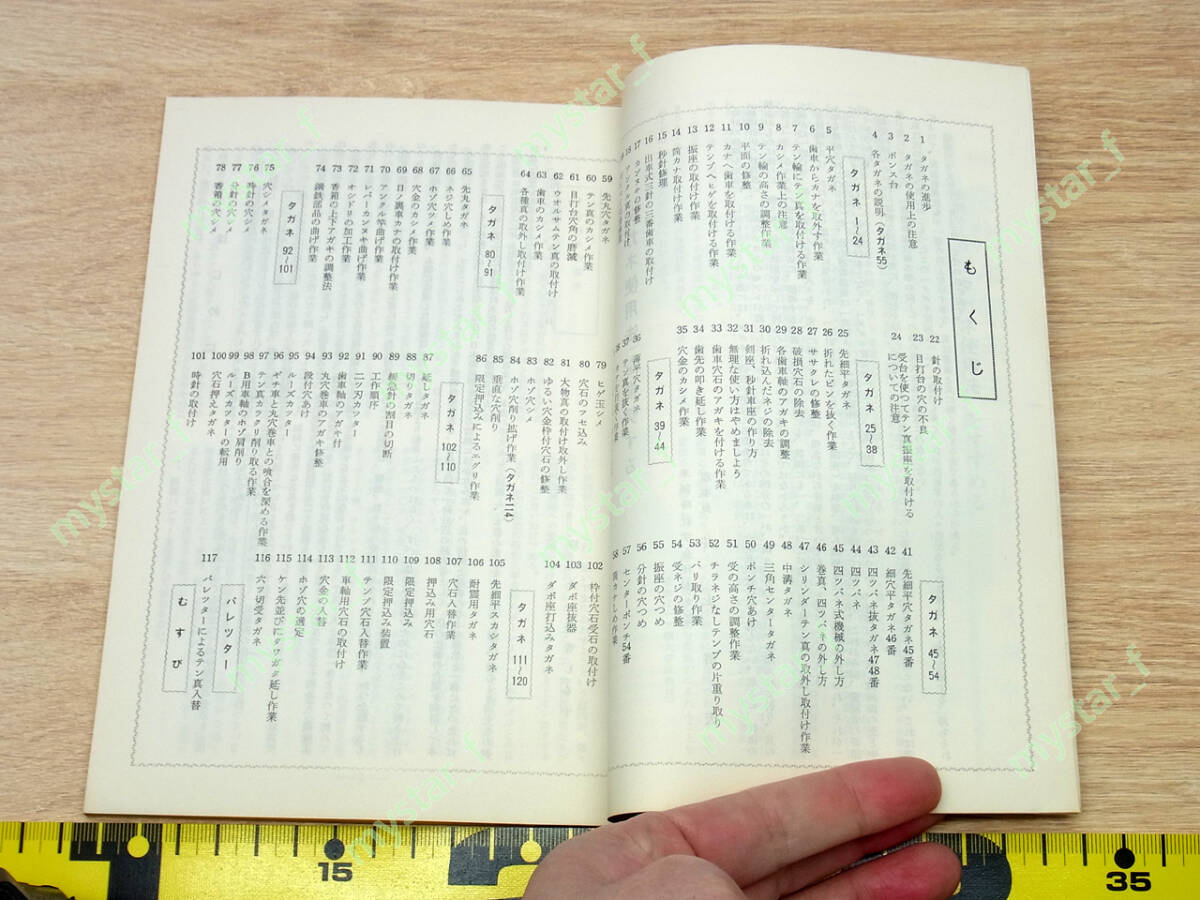 もくじ
1 タガネの進歩
2 タガネの使用上の注意
3 ポンス台
4 各タガネの説明(タガネ55)
タガネ 1〜24
5 平穴タガネ
6 歯車からカナを取外す作業
7 テン輪にテン真を取付ける作業
8 カシメ作業上の注意
9 テン輪の高さの調整作業
10 平面の修整
11 カナへ歯車を取付ける作業
12 テンプへヒゲを取付ける作業
13 振座の取付け作業
14 筒カナ取付け作業
15 秒針修理
16 出車式三針の二番歯車の取付け
17 カツギ車の修整
22 針の取付け
23 目打台の穴の不良
24 受台を使つてテン真振座を取付けるについての注意
タガネ 25〜38
25 先細平タガネ
26 折れたピンを抜く作業
27 ササクレの修整
28 破損穴石の除去
29 各歯車軸のアガキの調整
30 折れ込んだネジの除去
31 剣座、秒針車座の作り方
32 無理な使い方はやめましよう
33 歯車穴石のアガキを付ける作業
34 歯先の叩き延し作業
35 穴金のカシメ作業
タガネ 39〜44
36 薄平穴タガネ
37 テン真を抜く作業
タガネ 45〜54
41 先細平穴タガネ45番
42 細穴タガネ46番
43 四ツバネ抜タガネ47 48番
44 四ツバネ
45 四ツバネ式機械の外し方
46 巻真、四ツバネの外し方
47 シリンダーテン真の取外し取付け作業
48 中溝タガネ
49 三角センタータガネ
50 ポンチ穴あけ
51 受の高さの調整作業
52 チラネジなしテンプの片重り取り
53 バリ取り作業
54 受ネジの修整
55 振座の穴つめ
56 分針の穴つめ
57 センターポンチ54番
58 筒カナしめ作業
59 先丸穴タガネ
60 テン真のカシメ作業
61 目打台穴角の磨滅
62 ウオルサムテン真の取付け
63 歯車のカシメ作業
64 各種真の取外し取付け作業
タガネ 80〜91
65 先丸タガネ
66 ネジ穴しめ作業
67 ホゾ穴ツメ作業
68 穴金のカシメ作業
69 日ノ裏車カナの取付け作業
70 アンクル竿曲げ作業
71 レバーカンヌキ曲げ作業
72 オシドリの加工作業
73 香箱の上下アガキの調整法
74 鋼鉄部品の曲げ作業
タガネ 92〜101
75 穴シメタガネ
76 時針の穴シメ
77 分針の穴シメ
78 香箱の穴シメ
79 ヒゲ玉シメ
80 穴石のフセ込み
81 大物真の取付け取外し作業
82 ゆるい穴金枠付穴石の修整
83 ホゾ穴シメ
84 ホゾ穴削り拡げ作業(タガネ114)
85 垂直な穴削り
86 限定押込みによるエグリ作業
タガネ 102〜110
87 延しタガネ
88 切りタガネ
89 緩急針の割目の切断
90 工作順序
91 二ツ刃カッター
92 歯車軸のアガキ付
93 丸穴巻車のアガキ修整
94 段付穴あけ
95 ルーズカッター
96 ギチ車と丸穴巻車との喰合を深める作業
97 テン真カラクリ削り取る作業
98 B用車軸のホゾ肩削り
99 ルーズカッターの転用
100 穴石押えタガネ
101 時針の取付け
102 枠付穴石受石の取付け
103 ダボ座抜器
104 ダボ座打込みタガネ
タガネ 111〜120
105 先細平スカシタガネ
106 耐震用タガネ
107 穴石入替作業
108 押込み用穴石
109 限定押込み
110 限定押込み装置
111 テンプ穴石入替作業
112 車軸用穴石の取付け
113 穴金の入替
114 ホゾ穴の選定
115 ケン先並びにタワガタ延し作業
116 六ツ切受タガネ
バレツター
117 バレツターによるテン真入替
むすび
15
35
mystar_f